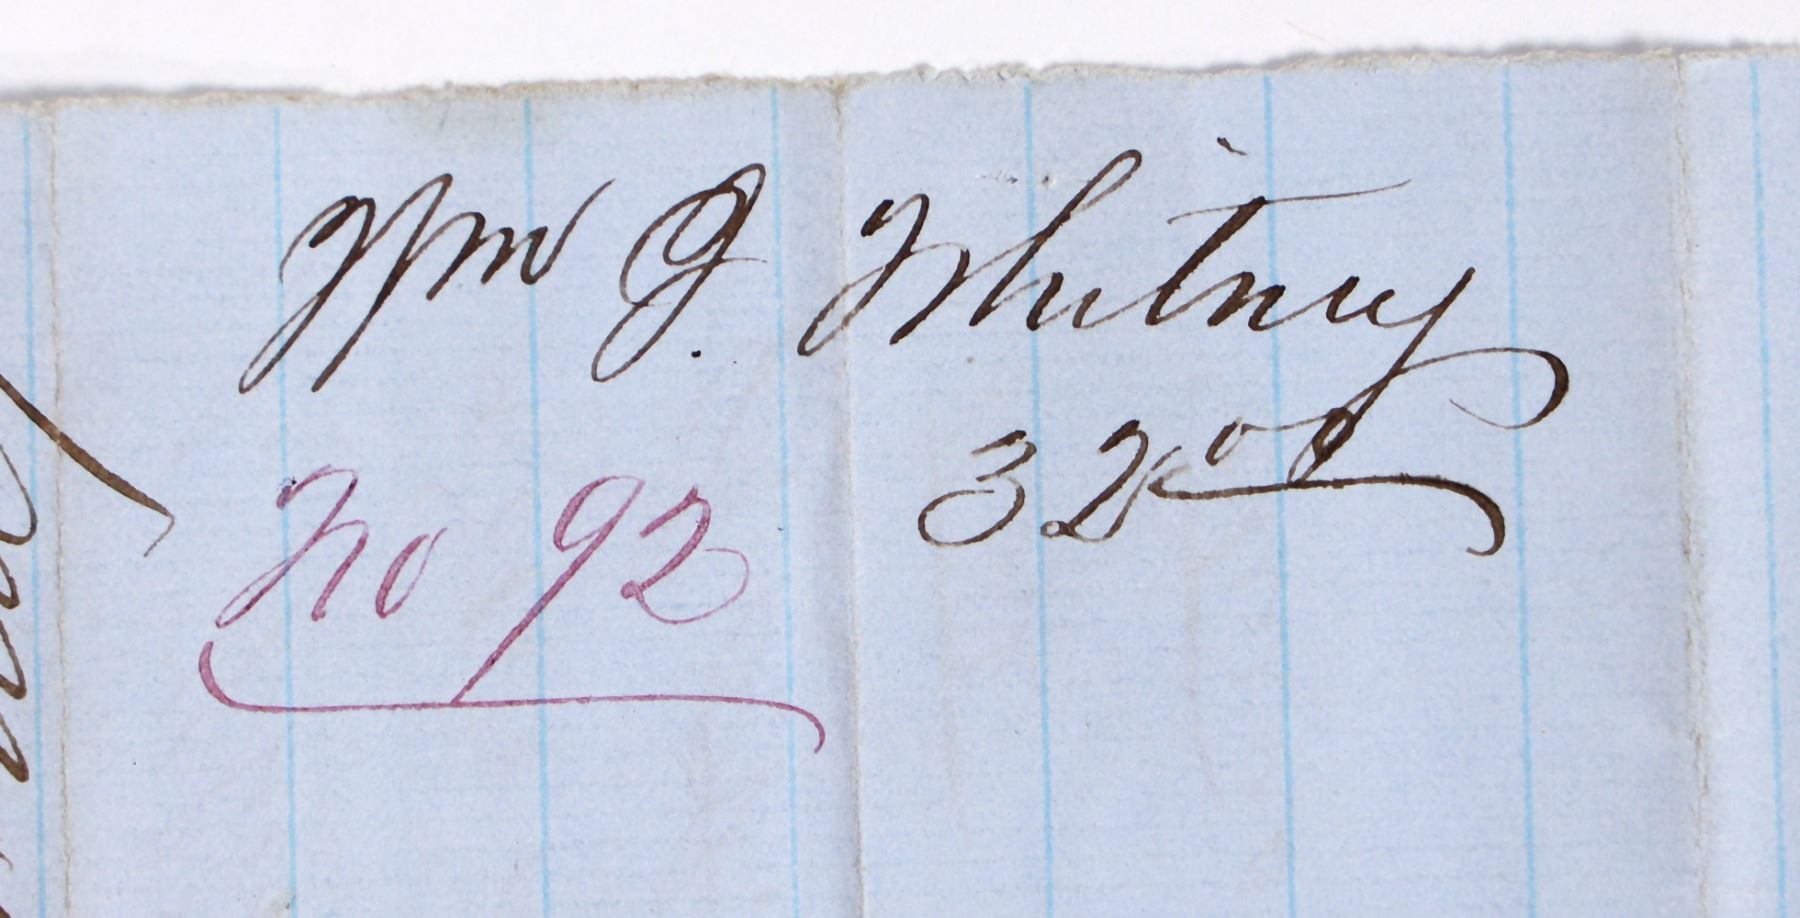 Wm G. Whitney
32 00
No 92